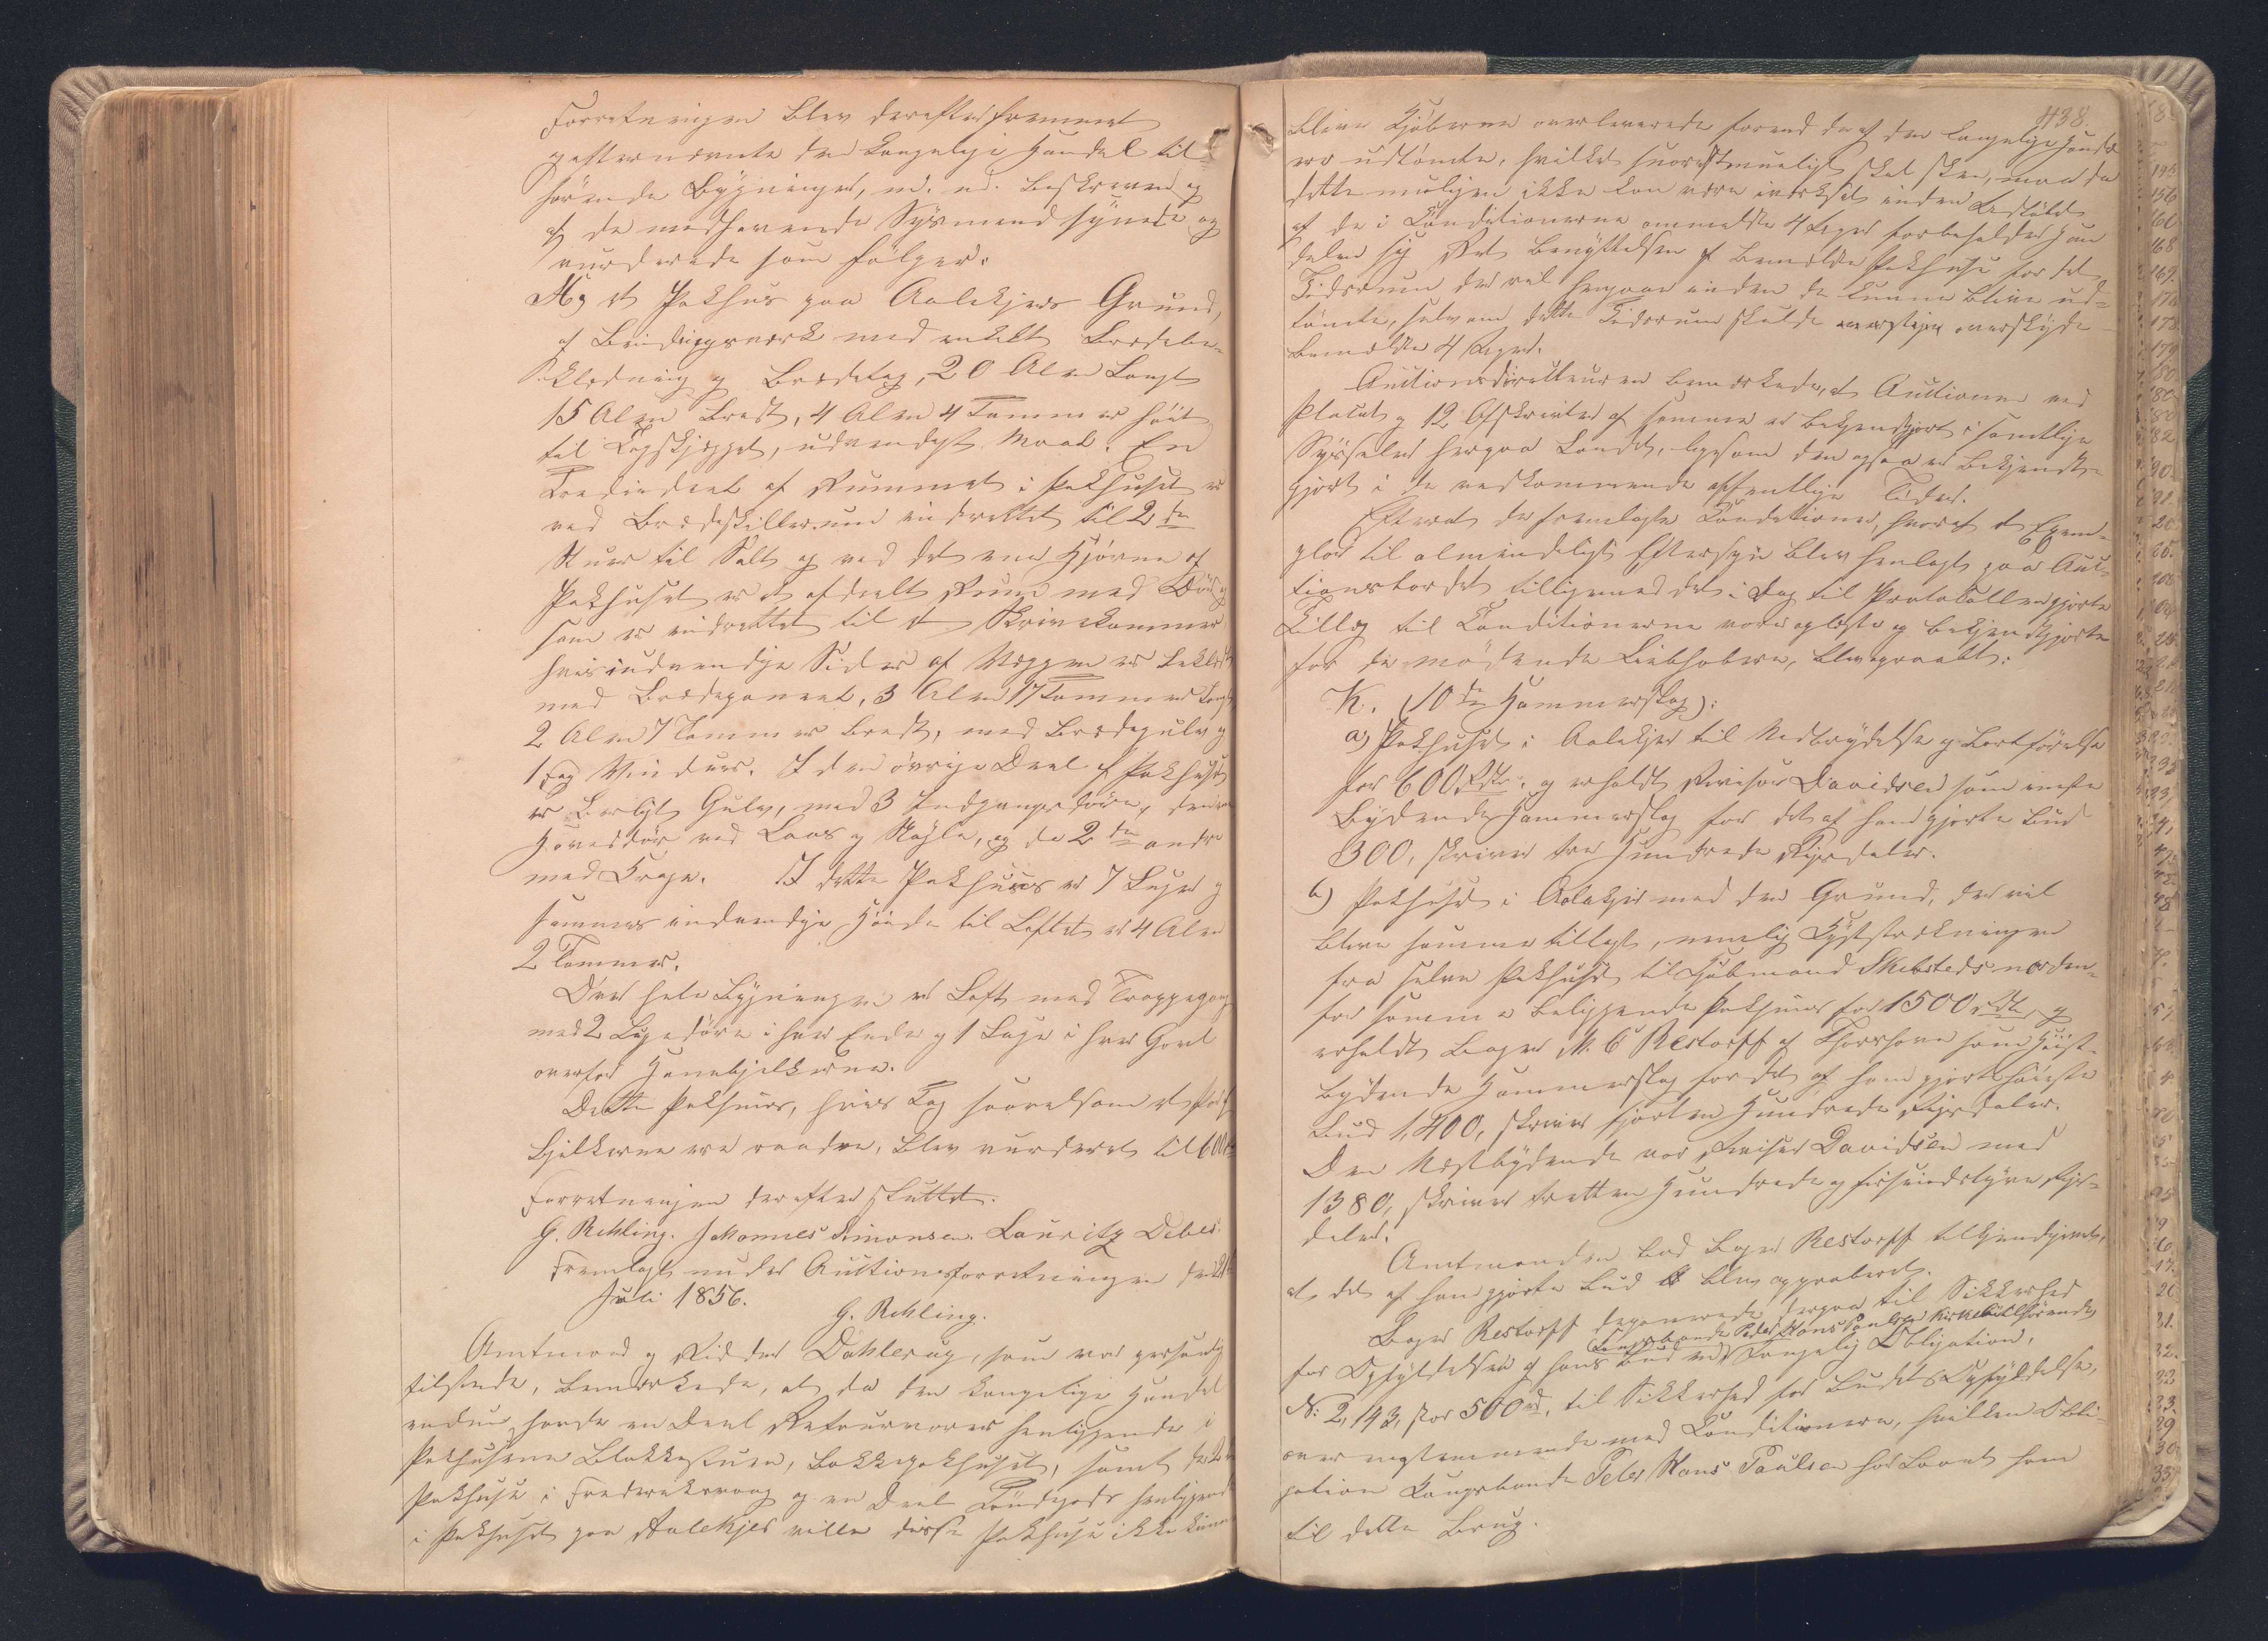 Forretningen blev derefter fremmet
og efternævnte den kongelige Handel til-
hørende Bygninger, nd. nd. beskrevne og
af de medhavende Synsmænd synede og
vurderede som følger.
et Pakhus paa Aalekjær Grund,
af Bindingsværk med enkelt Brædebe-
klædning og Brædetag, 20 Alen Langt
15 Alen bredt, 4 Alen 4 Tommer høit
til Tagskjægget, udvendigt Maal. En
Trediedeel af Rummet i Pakhuset er
ved Brædeskillerum indrettet til 2de
Rum til Salt og ved det ene Hjørne af
Pakhuset er et afdeelt Rum med Dør
som er indrettet til et Skrivekammer
hvis indvendige Sider af Væggene er beklædt
med Brædepaneel, 3 Alen 17 Tommer langt
2 Alen 7 Tommer bredt, med Brædegulv og
1 Fag Vindue. I den øvrige Deel af Pakhuset
er Gulv, med 3 Indgangsdøre, den ene
Hoveddør med Laas og Nøgle, og de 2de andre
med Krage. I dette Pakhuus er 7 og
sammes indvendige Høide til Loftet er 4 Alen
2 Tommer.
Over hele Bygningen er Loft med Trappegang
med 2 Lugedøre i hver Ende og 1 Luge i hver Gavl
ovenfor Hanebjelkerne.
Dette Pakhuus, hvis Tag saavelsom et Par af
Bjelkerne ere raadne, blev vurderet til 600
Forretningen derefter sluttet.
G. Rehling. Johannes Simonsen. Lauritz Debes.
Fremlagt under Auctionsforretningen den
Juli 1856.
G. Rehling.
Amtmand og Ridder Dahlerup, som var personlig
tilstede, bemærkede, at da den kongelige Handel
endnu havde en Deel Retourvarer henliggende i
Pakhusene Blokkestuen, Bakkepakhuset, samt de 2de
Pakhuse i Frederiksvaag og en Deel Tøndegods henliggende
i Pakhuset paa Aalekjer ville disse Pakhuse ikke kunne
438.
blive Kjøberne overleverede forend de af den kongelige Handel
ere udtømte, hvilket snarestmueligt skal skee, men da
dette muligen ikke kan være iværksat inden Udløbet
af de i Conditionerne ommeldte 4 Uger forbeholder Han-
delen sig Ret Benyttelsen af bemeldte Pakhuse for det
Tidsrum der vil hengaae inden de kunne blive ud-
tømte, selv om dette Tidsrum skulde overstige overskyde
bemeldte 4 Uger.
Auctionsdirecteuren bemærkede, at Auctionen ved
Placat og 12 Afskrivter af samme er bekjendtgjort i samtlige
Sysseler herpaa Landet, ligesom den ogsaa er bekjendt-
gjort i de vedkommende offentlige Tider.
Efterat de fremlagte Conditioner, hvoraf et Exem-
plar til almindeligt Eftersyn blev henlagt paa Auc-
tionsbordet tilligemed det i Dag til Protokollen gjorte
Tillæg til Conditionerne vare oplæste og bekjendtgjorte
for de mødende Liebhabere, blev opraabt:
K. (10de Hammerslag):
a) Pakhuset i Aalekjer til Nedbrydelse og Bortførelse
for 600 Rdlr. og erholdt Revisor Davidsen som eneste
Bydende Hammerslag for det af ham gjorte Bud
300, skriver tre Hundrede Rigsdaler.
b) Pakhuset i Aalekjer med den Grund, der vil
blive samme tillagt, nemlig Kyststrækningen
fra selve Pakhuset til Kjøbmand Skibsteds norden-
for samme beliggende Pakhuus for 1500 Rdlr. og
erholdt Bager M. C Restorff af Thorshavn som Høist-
bydende Hammerslag for det af ham gjorte høieste
Bud 1,400, skriver fjorten Hundrede Rigsdaler.
Den Næstbydende var Revisor Davidsen med
1380, skriver tretten Hundrede og firsindstyve Rigs-
daler.
Amtmanden lod Bager Restorff tilkjendegive,
at det af ham gjorte Bud blev approberet.
Bager Restorff deponerede derpaa til Sikkerhed
Kongsbonde Peder Hans Poulsen Kirkebø tilhørende
for Opfyldelsen af hans Bud Kongelig Obligation,
N: 2,143, stor 500 rd, til Sikkerhed for Budets Opfyldelse,
overensstemmende med Conditionerne, hvilken Obli-
gation Kongsbonde Peder Hans Poulsen har laant ham
til dette Brug.